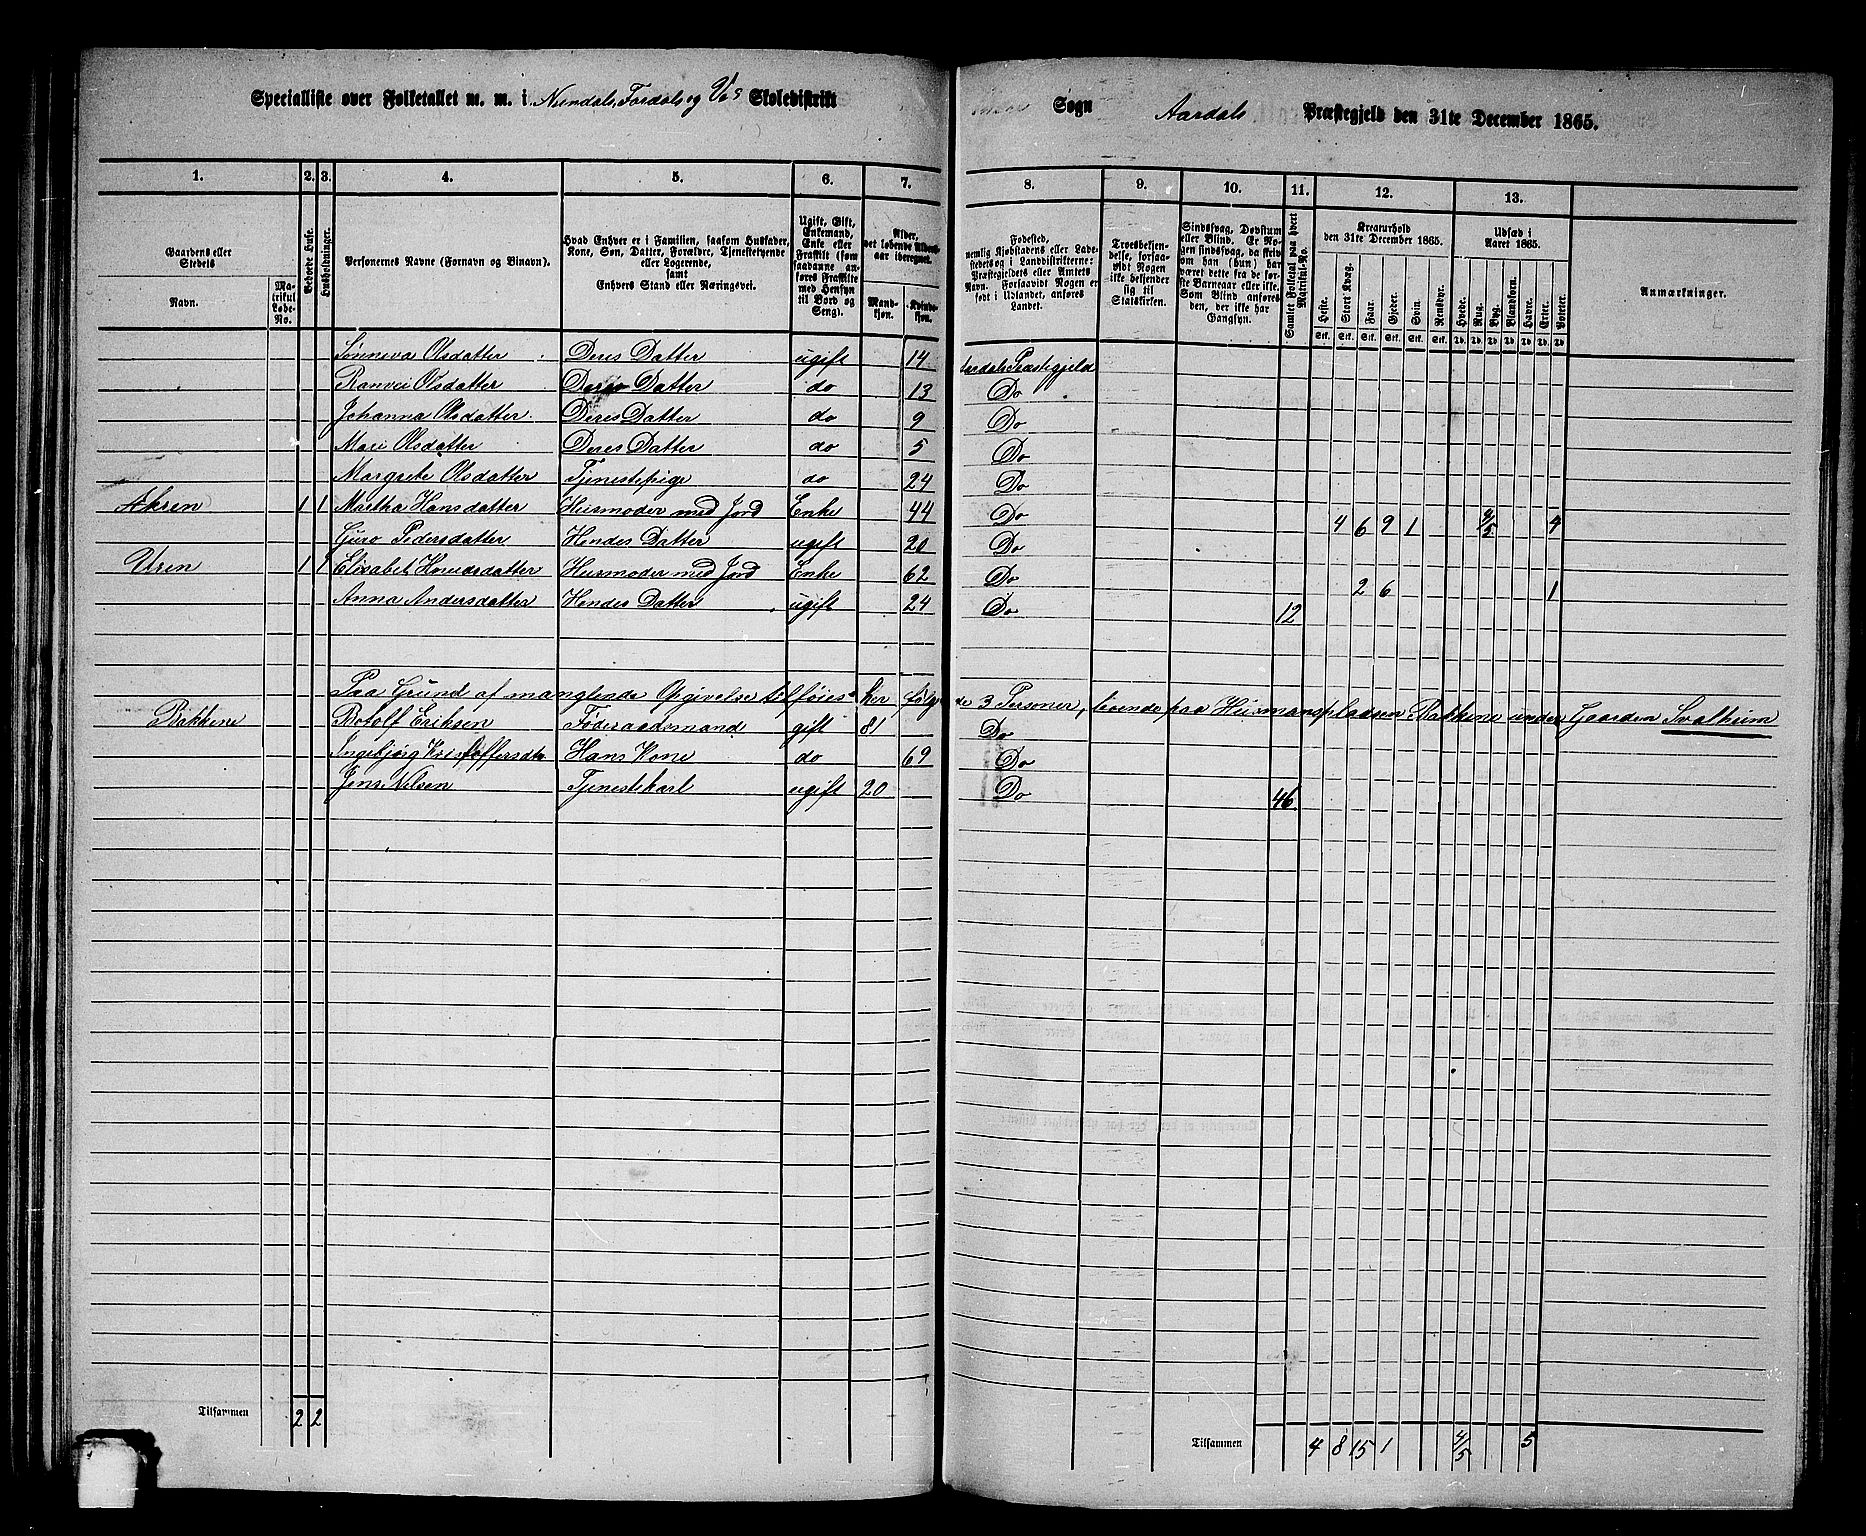 Specialliste over Folketallet m. m. i Nundals, Fardals og Ve's Skoledistrikt Sogn Aardals Præstegjeld den 31te December 1865.
1. 2. 3. 4. 5. 6. 7. 8. 9. 10. 11. 12. 13.
Gaardens eller Stedets
Navn.
Matrikul Løbe-No.
Beboede Huse.
Husholdninger.
Personernes Navne (Fornavn og Binavn).
Hvad Enhver er i Familien, saasom Husfader, Kone, Søn, Datter, Forældre, Tjenestetyende eller Logerende, samt Enhvers Stand eller Næringsvei.
Ugift, Gift, Enkemand, Enke eller Fraskilt (som saadanne anføres Fraskilte med Hensyn til Bord og Seng).
Alder, det løbende Aldersaar iberegnet.
Mandkjøn. Kvindekjøn.
Fødested, nemlig Kjøbstadens eller Ladestedets og i Landdistrikterne: Præstegjeldets eller Amtets Navn. Forsaavidt Nogen er født i Udlandet, anføres Landet.
Troesbekjendelse, forsaavidt Nogen ikke bekjender sig til Statskirken.
Sindssvag, Døvstum eller Blind. Er Nogen sindssvag, da skriv om han (hun) har været dette fra de første Barneaar eller ikke. Som Blind anføres den, der ikke har Gangsyn.
Samlet Folketal paa hvert Matrikul-No.
Kreaturhold den 31te December 1865.
Heste. Stort Kvæg. Faar. Gjeder. Svin. Rensdyr.
Udsæd i Aaret 1865.
Hvede. Rug. Byg. Blandkorn. Havre. Erter. Poteter.
Anmærkninger.
Stk. Stk. Stk. Stk. Stk. Stk. Td. Td. Td. Td. Td. Td. Td.
Sønneva Olsdatter Deres Datter ugift 14 Aardals Præstegjeld
Ranvei Olsdatter Deres Datter do 13 Do
Johanna Olsdatter Deres Datter do 9 Do
Mari Olsdatter Deres Datter do 5 Do
Margrete Olsdatter Tjenestepige do 24 Do
Akren 1 1 Martha Hansdatter Husmoder med Jord Enke 44 Do 4 6 9 1 4/5 4
Guro Pedersdatter Hendes Datter ugift 20 Do
Uren 1 1 Elisabet Knudsdatter Husmoder med Jord Enke 62 Do 2 6 1
Anna Andersdatter Hendes Datter ugift 24 Do 12
Paa Grund af manglende Opgivelse tilføies her følgende 3 Personer, boende paa Husmanspladsen Bakkene under Gaarden Svalheim
Bakkene Botolf Eriksen Føderaadsmand gift 81 Do
Ingebjørg Kristoffersdtr Hans Kone do 69 Do
Jens Nilsen Tjenestekarl ugift 20 Do 46
Tilsammen 2 2 Tilsammen 4 8 15 1 4/5 5